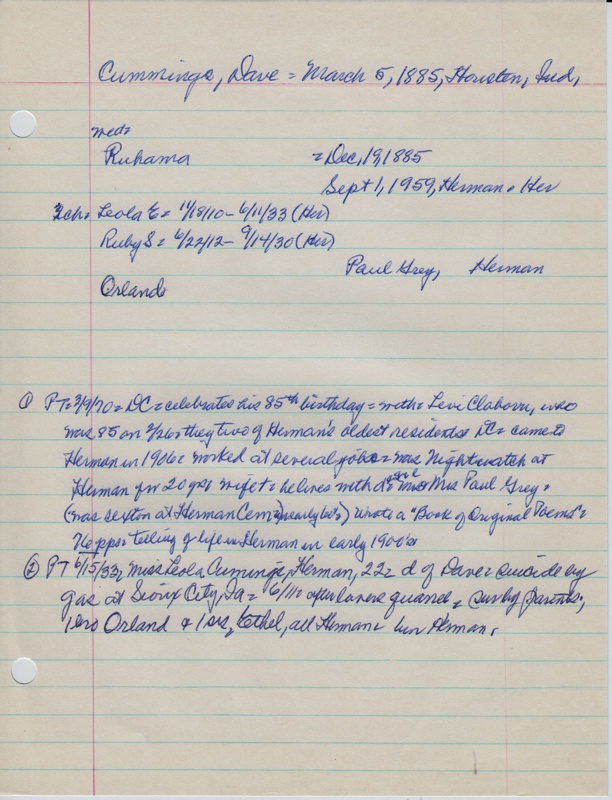 Cummings, Dave = March 5, 1885, Houston, Ind,
wed=
Ruhama = Dec, 19, 1885
Sept 1, 1959, Herman = Her
2ch= Leola E = 11/18/10 - 6/11/33 (Her)
Ruby S = 6/22/12 - 9/14/30 (Her)
Paul Grey, Herman
Orlando
① PT = 3/9/70 = DC = celebrates his 85th birthday = with = Levi Claborn, who
was 85 on 2/26 = they two of Herman's oldest residents = DC = came to
Herman in 1906 = worked at several jobs = was Nightwatch at
Herman for 20 yrs = wife † = he lives with Mrs Paul Grey =
(was sexton at Herman Cem) wrote a "Book of Original Poems" =
76 pps = telling of life in Herman in early 1900's
② PT 6/15/33, Miss Leola Cummings, Herman, 22 = d of Dave = suicide by
gas at Sioux City, Ia = 6/11 = after lovers quarrel = surby parents,
1 bro Orland & 1 sis, Ethel, all Herman = bur Herman,